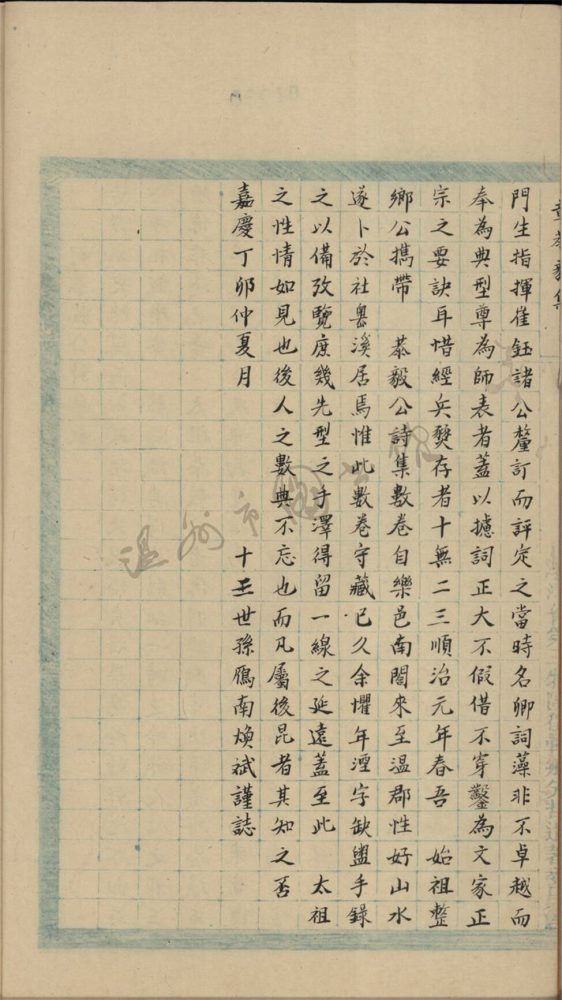 章恭毅集
門生指揮崔鈺諸公釐訂而評定之當時名卿詞藻非不卓越而
奉為典型尊為師表者蓋以攄詞正大不假借不穿鑿為文家正
宗之要訣耳惜經兵燹存者十無二三順治元年春吾 始祖整
鄉公攜帶 恭毅公詩集數卷自樂邑南閤來至温郡性好山水
遂卜於社嶴溪居焉惟此數卷守藏已久余懼年湮字缺盥手錄
之以備攷覽庶幾先型之手澤得留一線之延遠蓋至此 太祖
之性情如見也後人之數典不忘也而凡屬後昆者其知之否
嘉慶丁卯仲夏月 十五世孫鴈南煥斌謹誌
温州市圖書館